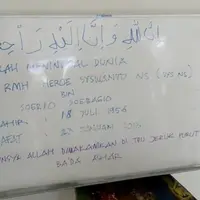 إنا لله وإنا إليه راجعون
RAH MENINGGAL DUNIA
RMH HEROE SYSWANTO NS
BIN
SOERKO SOEBAGIO
AHIR : 18 JULI 1956
: 22 JANUARI
ALLAH DIMAKAMKAN DI TPU JERUK PURUT
BADA ASHAR